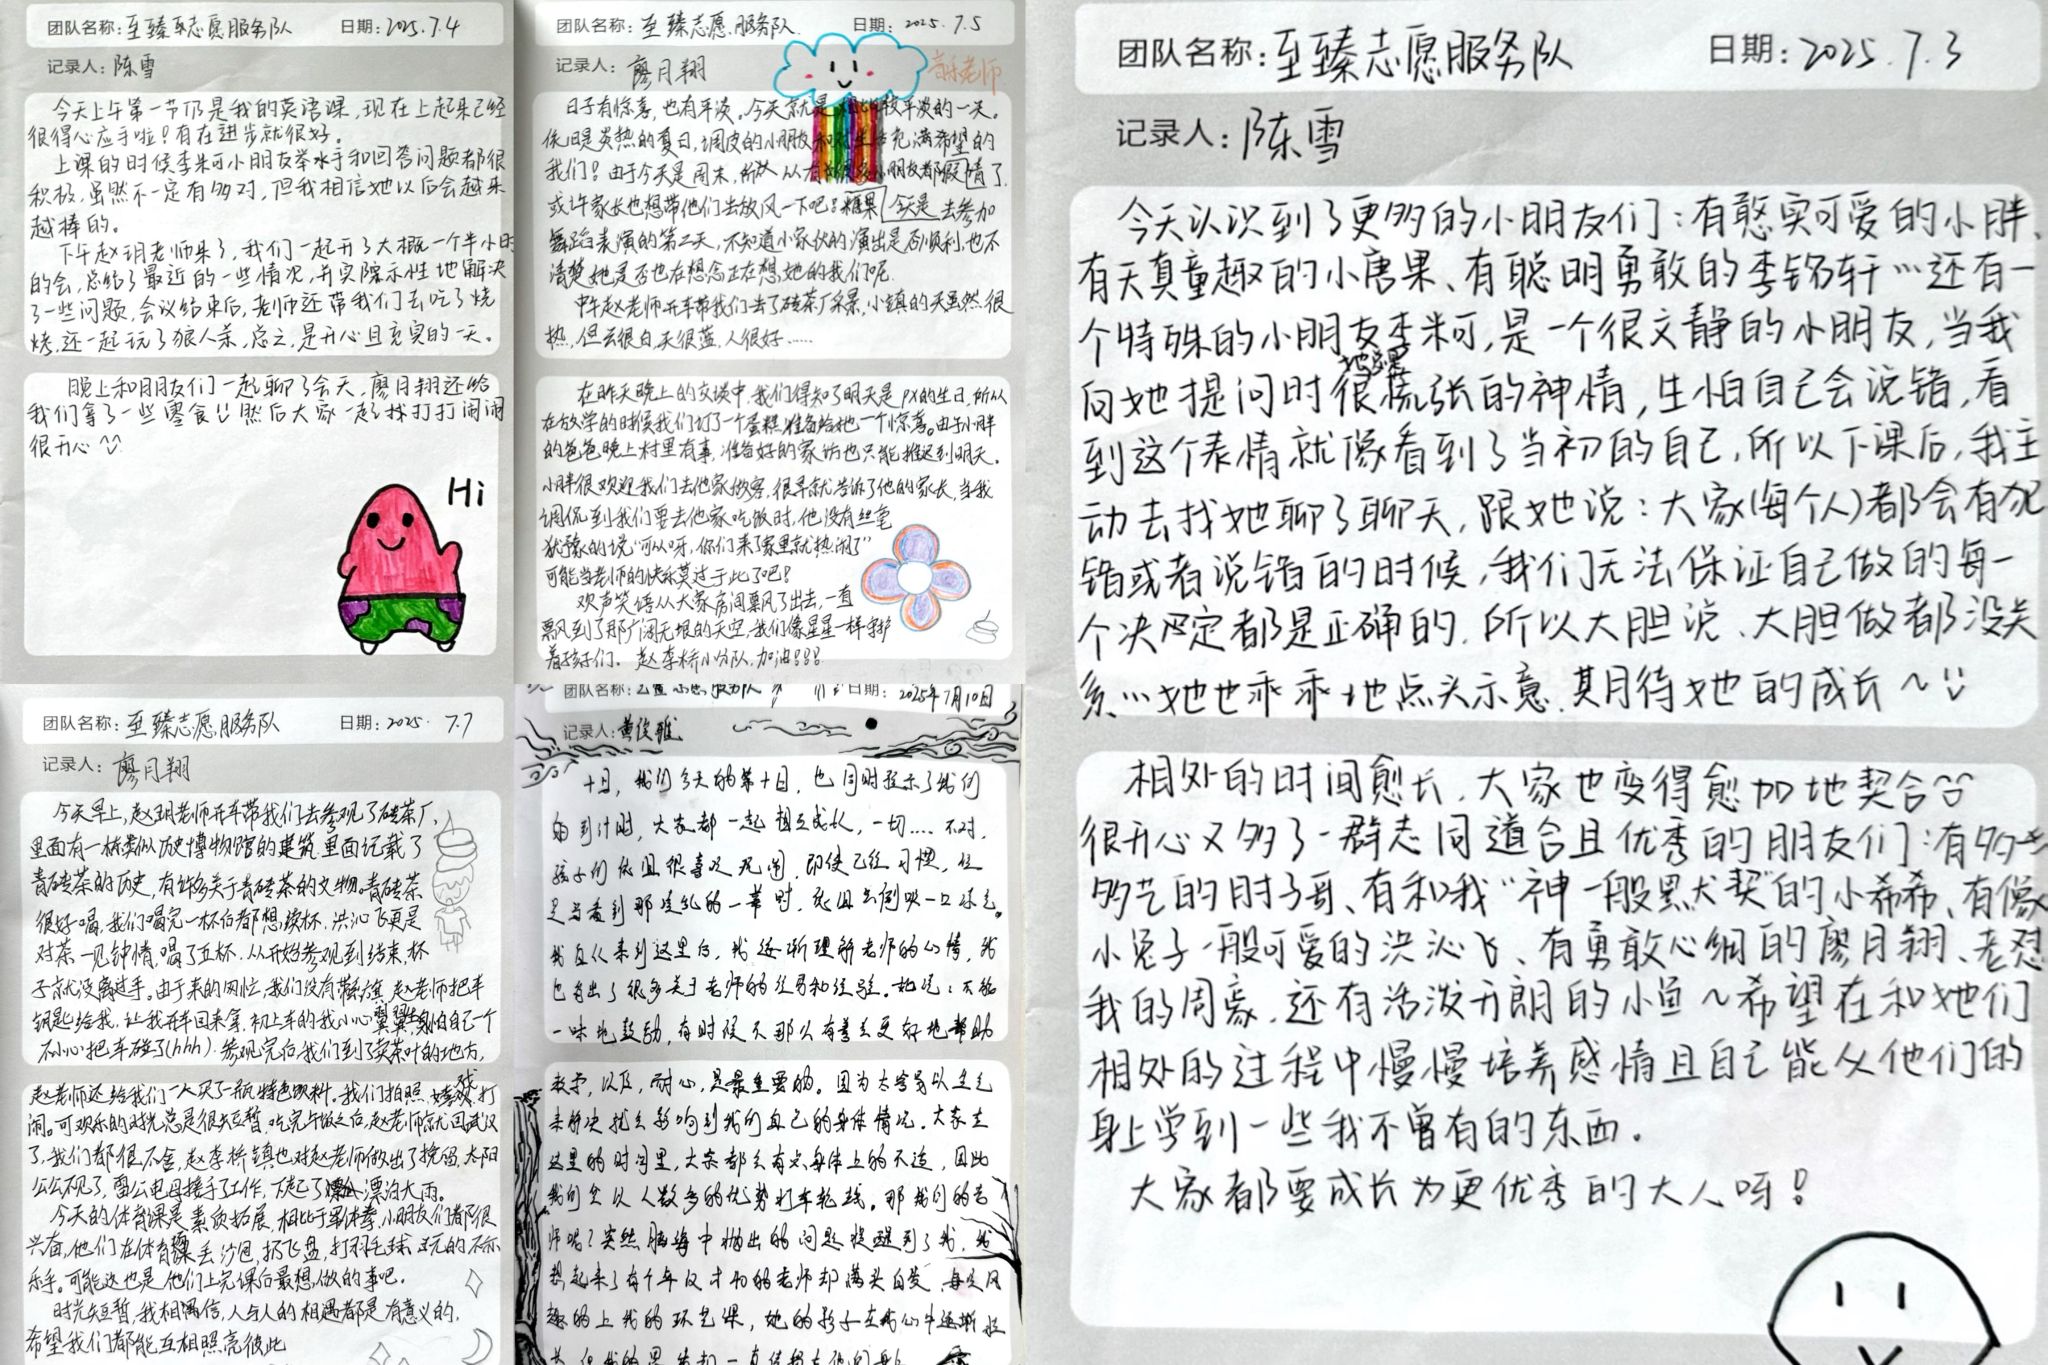 团队名称:至臻志愿服务队 日期:2025.7.4
记录人:陈雪
今天上午第一节仍是我的英语课,现在上起来已经
很得心应手啦!有在进步就很好。
上课的时候李米可小朋友举水手和回答问题都很
积极,虽然不一定有多对,但我相信她以后会越来
越棒的。
下午赵玥老师来了,我们一起开了大概一个半小时
的会,总结了最近的一些情况,并实际性地解决
了一些问题,会议结束后,老师还带我们去吃了烧
烤,还一起玩了狼人杀,总之,是开心且充实的一天。
晚上和朋友们一起聊了会天,廖月翔还给
我们拿了一些零食 然后大家一起打打闹闹
很开心
Hi
团队名称:至臻志愿服务队 日期:2025.7.5
记录人:廖月翔
音乐老师
日子有惊喜,也有平淡。今天就是比较平淡的一天。
依旧是炎热的夏日,调皮的小朋友和对生活充满希望的
我们!由于今天是周末,所以有很多小朋友都请假了,
或许家长也想带他们去放风一下吧!糖果今天是去参加
舞蹈表演的第二天,不知道小家伙的演出是否顺利,也不
清楚她是否也在想念正在想她的我们呢。
中午赵老师开车带我们去了砖茶厂采景,小镇的天虽然很
热,但云很白,天很蓝,人很好……
在昨天晚上的交谈中,我们得知了明天是px的生日,所以
在放学的时候我们订了一个蛋糕,准备给她一个惊喜。由于小胖
的爸爸晚上村里有事,准备好的家访也只能推迟到明天。
小胖很欢迎我们去他家做客,很早就告诉了他的家长,当我
调侃到我们要去他家吃饭时,他没有丝毫
犹豫的说“可以呀,你们来了家里就热闹了”
可能当老师的快乐莫过于此了吧!
欢声笑语从大家房间飘了出去,一直
飘到了那广阔无垠的天空,我们像星星一样守护
着孩子们。赵李桥小分队,加油!!!
团队名称:至臻志愿服务队 日期:2025.7.7
记录人:廖月翔
今天早上,赵玥老师开车带我们去参观了砖茶厂,
里面有一栋类似历史博物馆的建筑,里面记载了
青砖茶的历史,有许多关于青砖茶的文物。青砖茶
很好喝,我们喝完一杯后都想续杯,洪沁飞更是
对茶一见钟情,喝了五杯,从开始参观到结束,杯
子就没离过手。由于来的匆忙,我们没有带,赵老师把车
钥匙给我,让我开车回来拿,初上车的我小心翼翼生怕自己一个
不小心把车碰了(hhh)。参观完后,我们到了卖茶叶的地方,
赵老师还给我们一人买了一瓶特色饮料。我们拍照,嬉戏,打
闹。可欢乐的时光总是很短暂,吃完午饭之后,赵老师就回武汉
了,我们都很不舍,赵李桥镇也对赵老师做出了挽留,太阳
公公不见了,雷公电母接手了工作,下起了漂泊大雨。
今天的体育课是素质拓展,相比于军体拳,小朋友们都很
兴奋,他们在体育课丢沙包,扔飞盘,打羽毛球,玩的不亦
乐乎。可能这也是他们上完课后最想做的事吧。
时光短暂,我相信,人与人的相遇都是有意义的,
希望我们都能互相照亮彼此
团队名称:至臻志愿服务队 日期:2025年7月10日
记录人:黄俊雅
十日,我们今天的第十日,也同时提示了我们
的到计时,大家都一起相互成长,一切....不对,
孩子们依旧很喜欢儿闹,即使已经习惯,但
是当看到那混乱的一幕时,我且会倒吸一口凉气。
我自从来到这里后,我逐渐理解老师的心情,我
也有出了很多关于老师的经验。她说:不能
一味地鼓励,有时候不那么有善会更好地帮助
教学,以及,耐心,是最重要的。因为太容易以生气
来解决就会影响到我们自己的身体情况。大家在
这里的时间里,大家都会有点身体上的不适,因此
我们会以人数多的优势打车轮战。那我们的老
师呢?突然脑海中抛出的问题提醒到了我,我
想起来了有个年仅才的老师却满头白发,每次风
趣的上我的环艺课,她的影子在我心中逐渐拉
团队名称:至臻志愿服务队 日期:2025.7.3
记录人:陈雪
今天认识到了更多的小朋友们:有憨实可爱的小胖、
有天真童趣的小唐果、有聪明勇敢的李铭轩…还有一
个特殊的小朋友李米可,是一个很文静的小朋友,当我
向她提问时很慌张的神情,生怕自己会说错,看
到这个表情就像看到了当初的自己,所以下课后,我主
动去找她聊了聊天,跟她说:大家(每个人)都会有犯
错或者说错的时候,我们无法保证自己做的每一
个决定都是正确的,所以大胆说、大胆做都没关
系…她也乖乖地点头示意,期待她的成长~
相处的时间愈长,大家也变得愈加地契合
很开心又多了一群志同道合且优秀的朋友们:有多才
多艺的肘子哥、有和我“神一般默契”的小希希、有像
小兔子一般可爱的洪沁飞、有勇敢心细的廖月翔、老怼
我的周豪,还有活泼开朗的小鱼~希望在和她们
相处的过程中慢慢培养感情且自己能从他们的
身上学到一些我不曾有的东西。
大家都要成长为更优秀的大人呀!